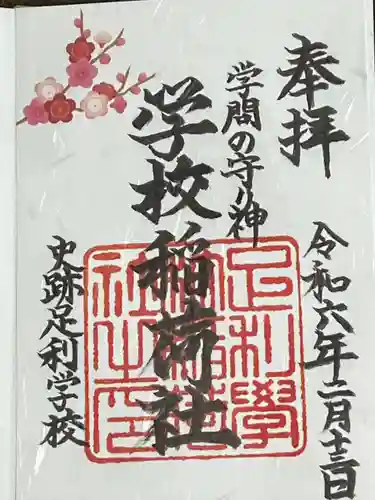 奉拝
令和六年二月十三日
学問の守り神
学校稲荷社
史跡足利学校
足利學
校稲荷
社之印